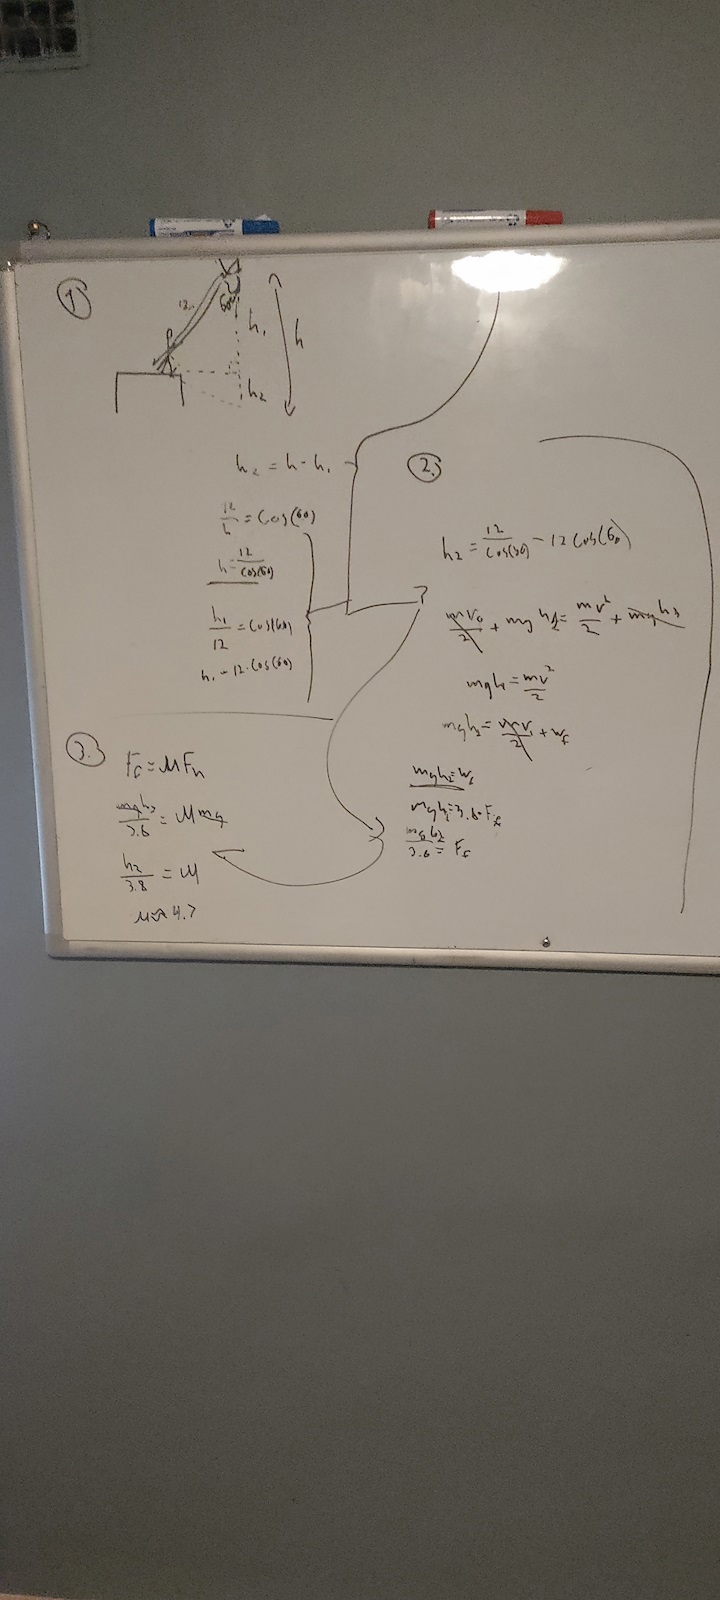 1)
12
60
h₁
h
h₂
h₂ = h - h₁
12/h = cos(60)
h = 12/cos(60)
h₁/12 = cos(60)
h₁ = 12·cos(60)
2.
h₂ = 12/cos(60) - 12 cos(60)
mv₀/2 + mgh₂ = mv²/2 + mgh₃
mgh = mv²/2
mgh₂ = mv₁/2 + wf
mgh₂ = wf
mgh₂ = 3.8·Ff
mgh₂/3.8 = Ff
3.
Ff = μFn
mgh₂/3.8 = μmg
h₂/3.8 = μ
μ≈4.7